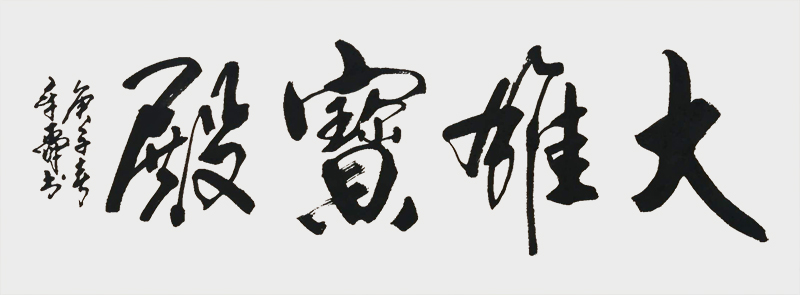 大雄寶殿
庚子春